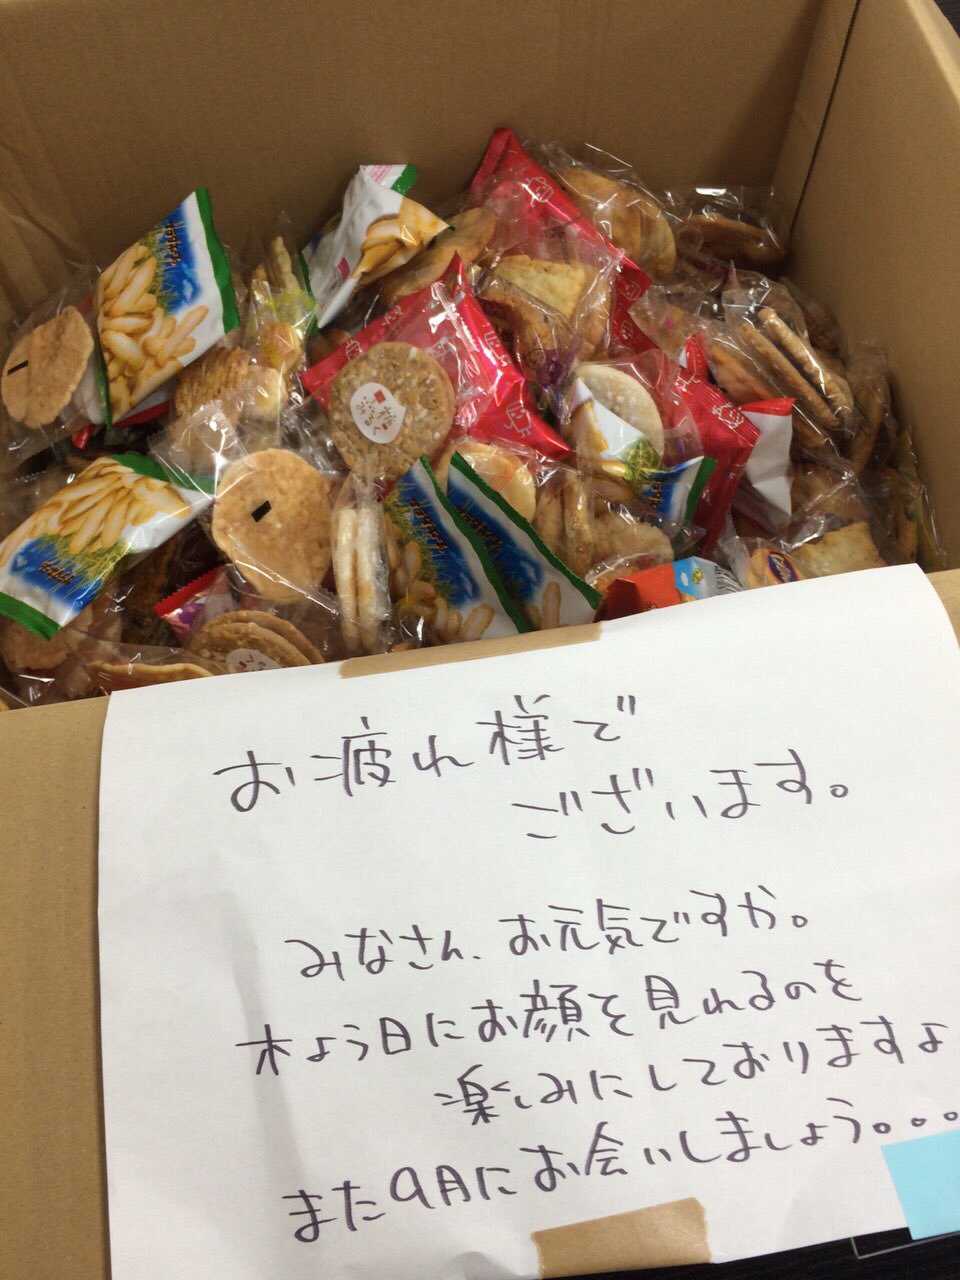 お疲れ様で
ございます。
みなさん、お元気ですか。
木よう日にお顔を見れるのを
楽しみにしておりますよ
また9月にお会いしましょう。。。